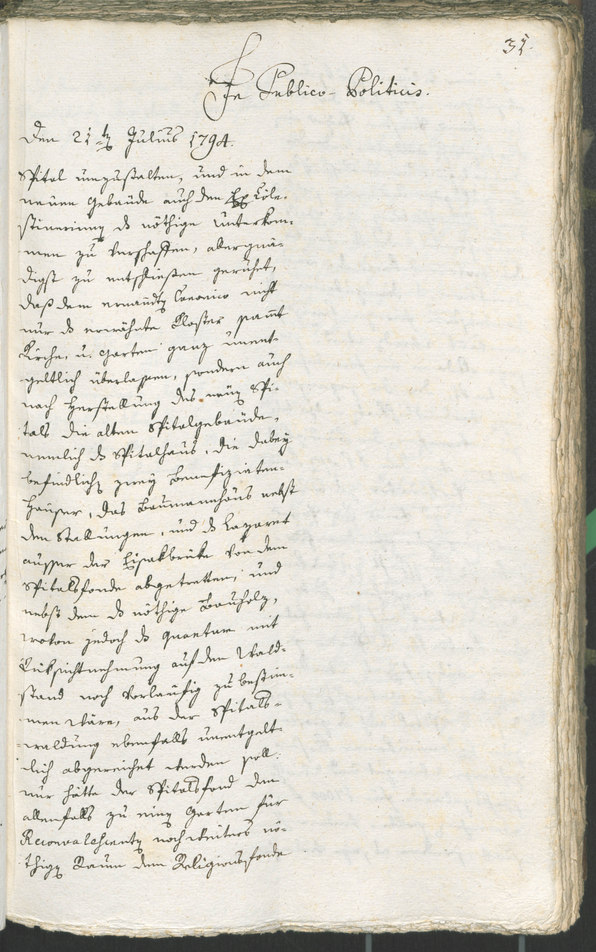 31.
In Publico-Politicis.
Den 21ten Julius 1794.
Spital umzustalten, und in dem
neuen Gebäude auch den Ex Cöle-
stinerinen de nöthige Unterkom-
men zu verschaffen, abergnä-
digst zu entschließen geruhet,
daß dem ernandten Canonico nicht
nur de erwähnte Closter samt
Kirche, u. Garten ganz unent-
geltlich überlassen, sondern auch
nach Herstellung des neuen Spi-
tals die alten Spitalgebäude,
nemlich de Spitalhaus, die dabey
befindlichen zwey Benefiziaten-
Häuser, das Baumannhaus nebst
den Stallungen, und de Lazaret
ausser der Eisakbrüke von dem
Spitalsfonde abgetretten, und
nebst dem de nöthige Bauholz,
wovon jedoch de Quantum mit
Rüksichtnehmung auf den Wald-
stand noch vorläufig zu bestim-
men wäre, aus der Spitals-
waldung ebenfalls unentgelt-
lich abgereichet werden soll.
Nur hätte der Spitalsfond den
allenfalls zu einen Garten für
Reconvalescenten noch weiters nö-
thigen Raum dem Religionsfonde